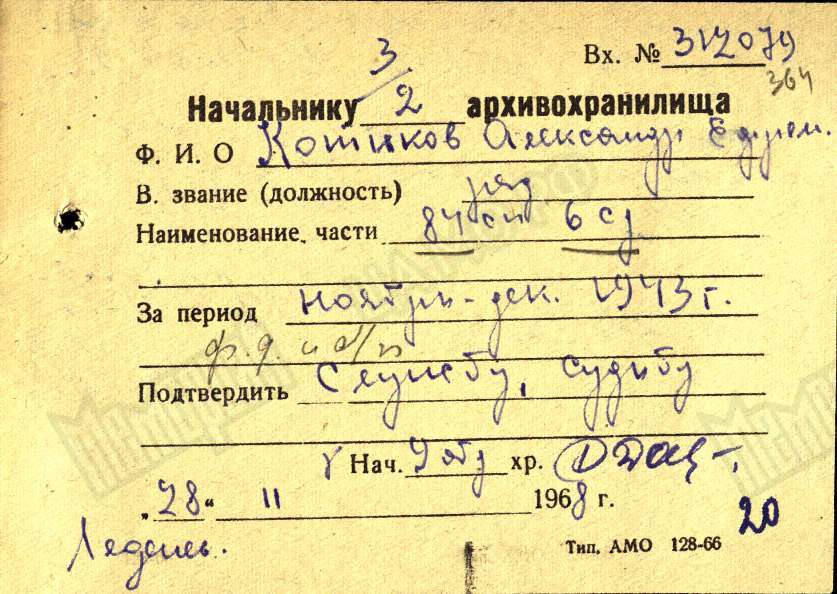 Вх. № 317079
364
3/2
Начальнику архивохранилища
Ф. И. О Котиков Александр Ефрем.
В. звание (должность) ряд
Наименование части 84 сп 6 сд
За период ноябрь-дек. 1943 г.
ф. д. и
Подтвердить службу, судьбу
Нач. хр.
„28“ 11 1968 г.
20
Тип. АМО 128-66